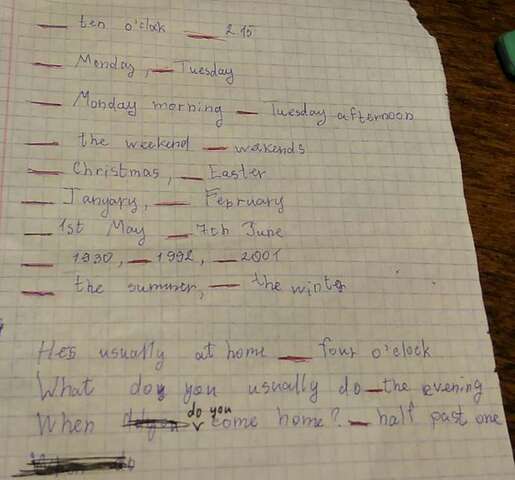 __ ten o'clock __ 2 15
__ Monday, __ Tuesday
__ Monday morning __ Tuesday afternoon
__ the weekend __ wekends
__ Christmas, __ Easter
__ Janyary, __ Fepruary
__ 1st May __ 7th June
__ 1930, __ 1992, __ 2001
__ the summer, __ the winter
He's usually at home __ four o'clock
What do you usually do __ the evening
When do you come home? __ half past one